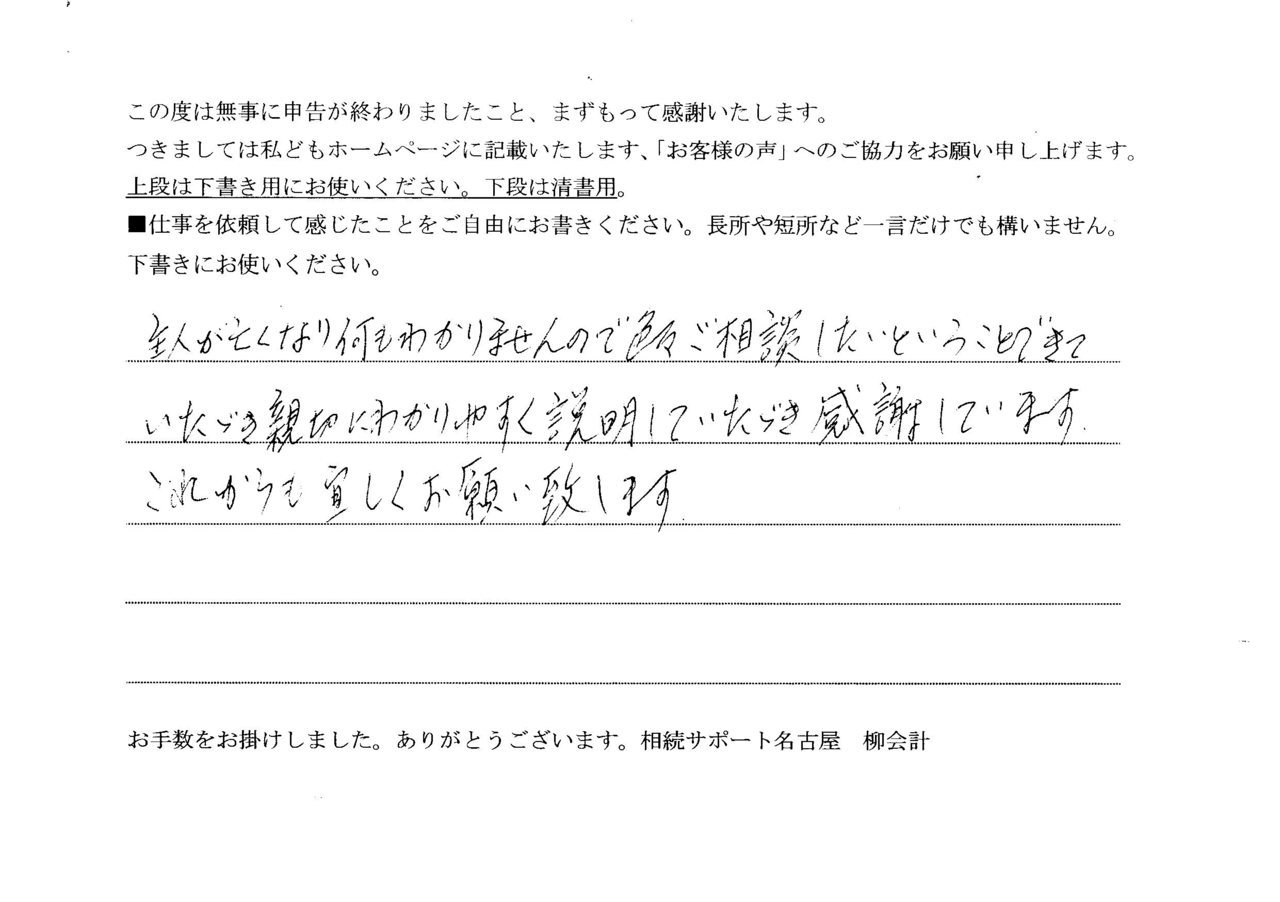 この度は無事に申告が終わりましたこと、まずもって感謝いたします。
つきましては私どもホームページに記載いたします、「お客様の声」へのご協力をお願い申し上げます。
上段は下書き用にお使いください。下段は清書用。
■仕事を依頼して感じたことをご自由にお書きください。長所や短所など一言だけでも構いません。
下書きにお使いください。
主人が亡くなり何もわかりませんので色々ご相談したいということできて
いただき親切にわかりやすく説明していただき感謝しています.
これからも宜しくお願い致します.
お手数をお掛けしました。ありがとうございます。相続サポート名古屋　柳会計